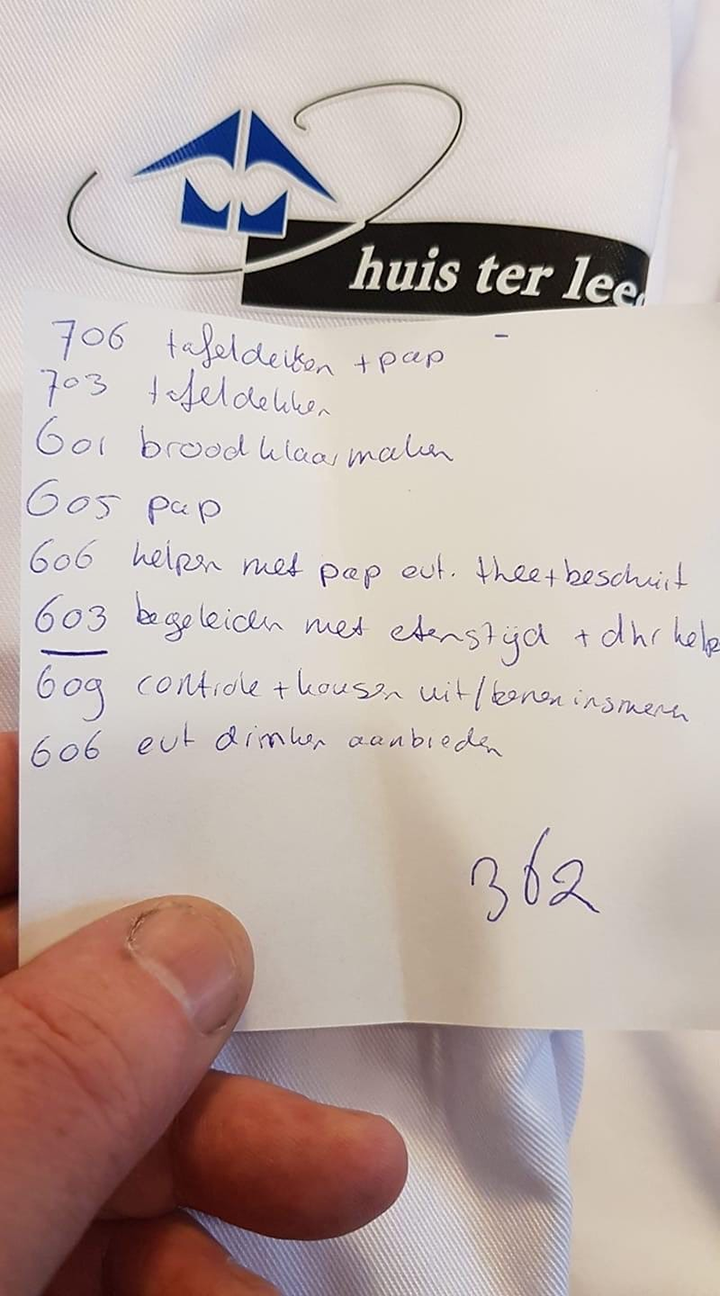 huis ter lee
706 tafeldekken + pap
703 tafeldekken
601 brood klaarmaken
605 pap
606 helpen met pap evt. thee + beschuit
603 begeleiden met etenstijd + dhr help
609 controle + kousen uit/benen insmeren
606 evt drinken aanbieden
362